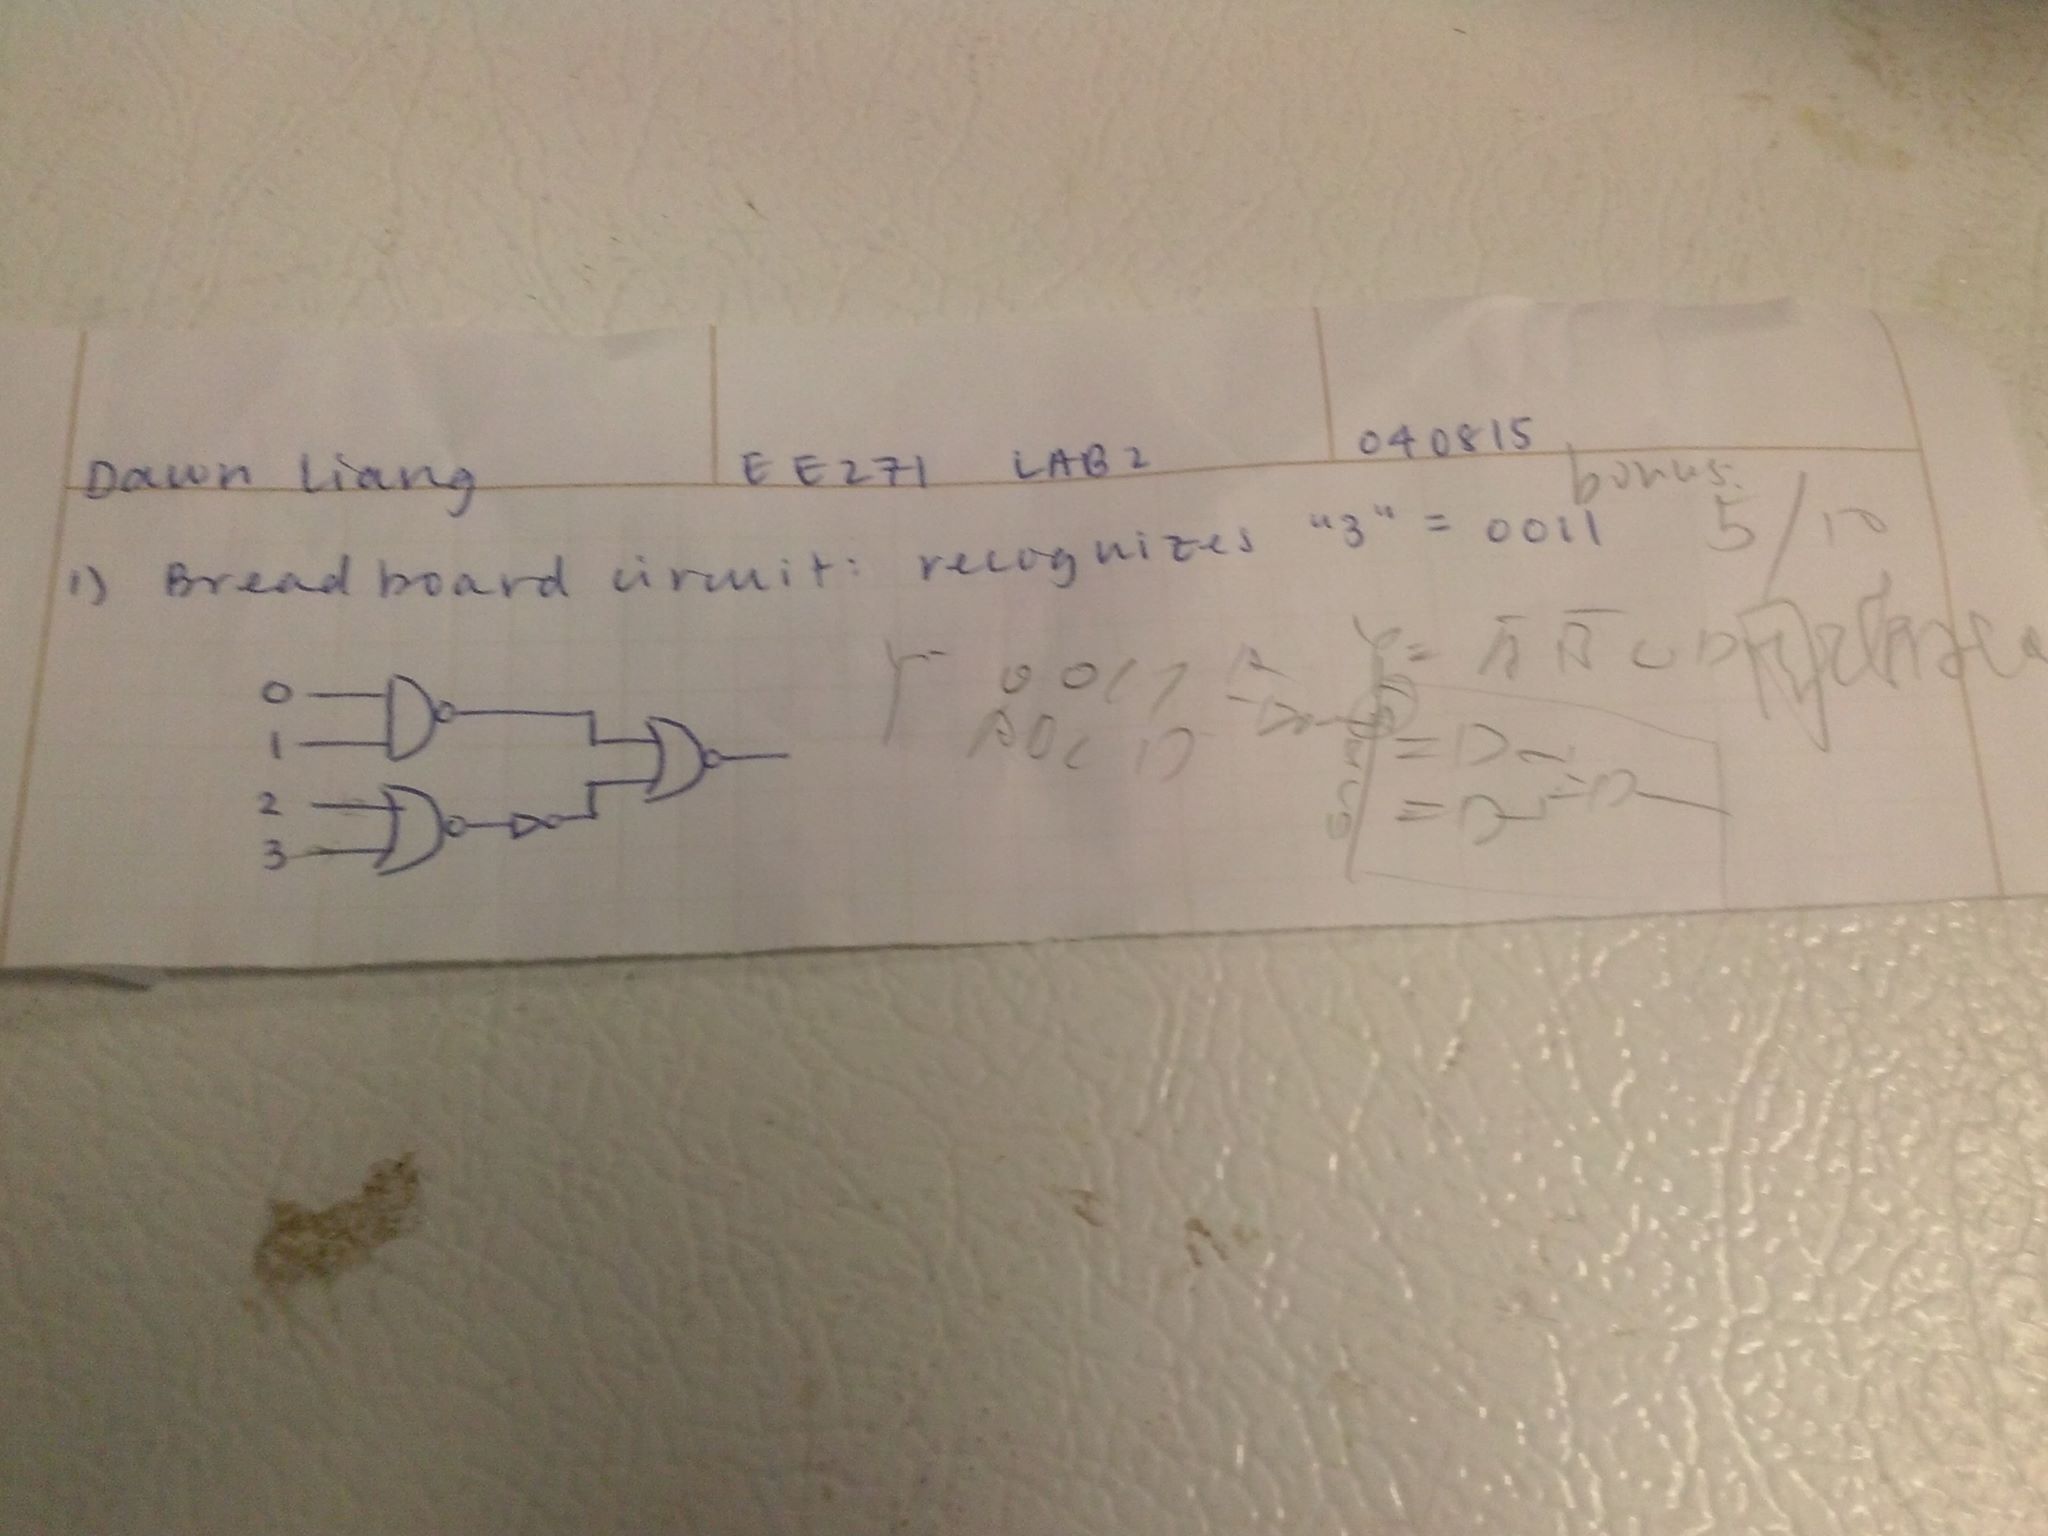 Dawn Liang EE271 LAB2 040815
bonus:
1) Breadboard circuit: recognizes "3" = 0011 5/10
0
1
2
3
0011
ABCD